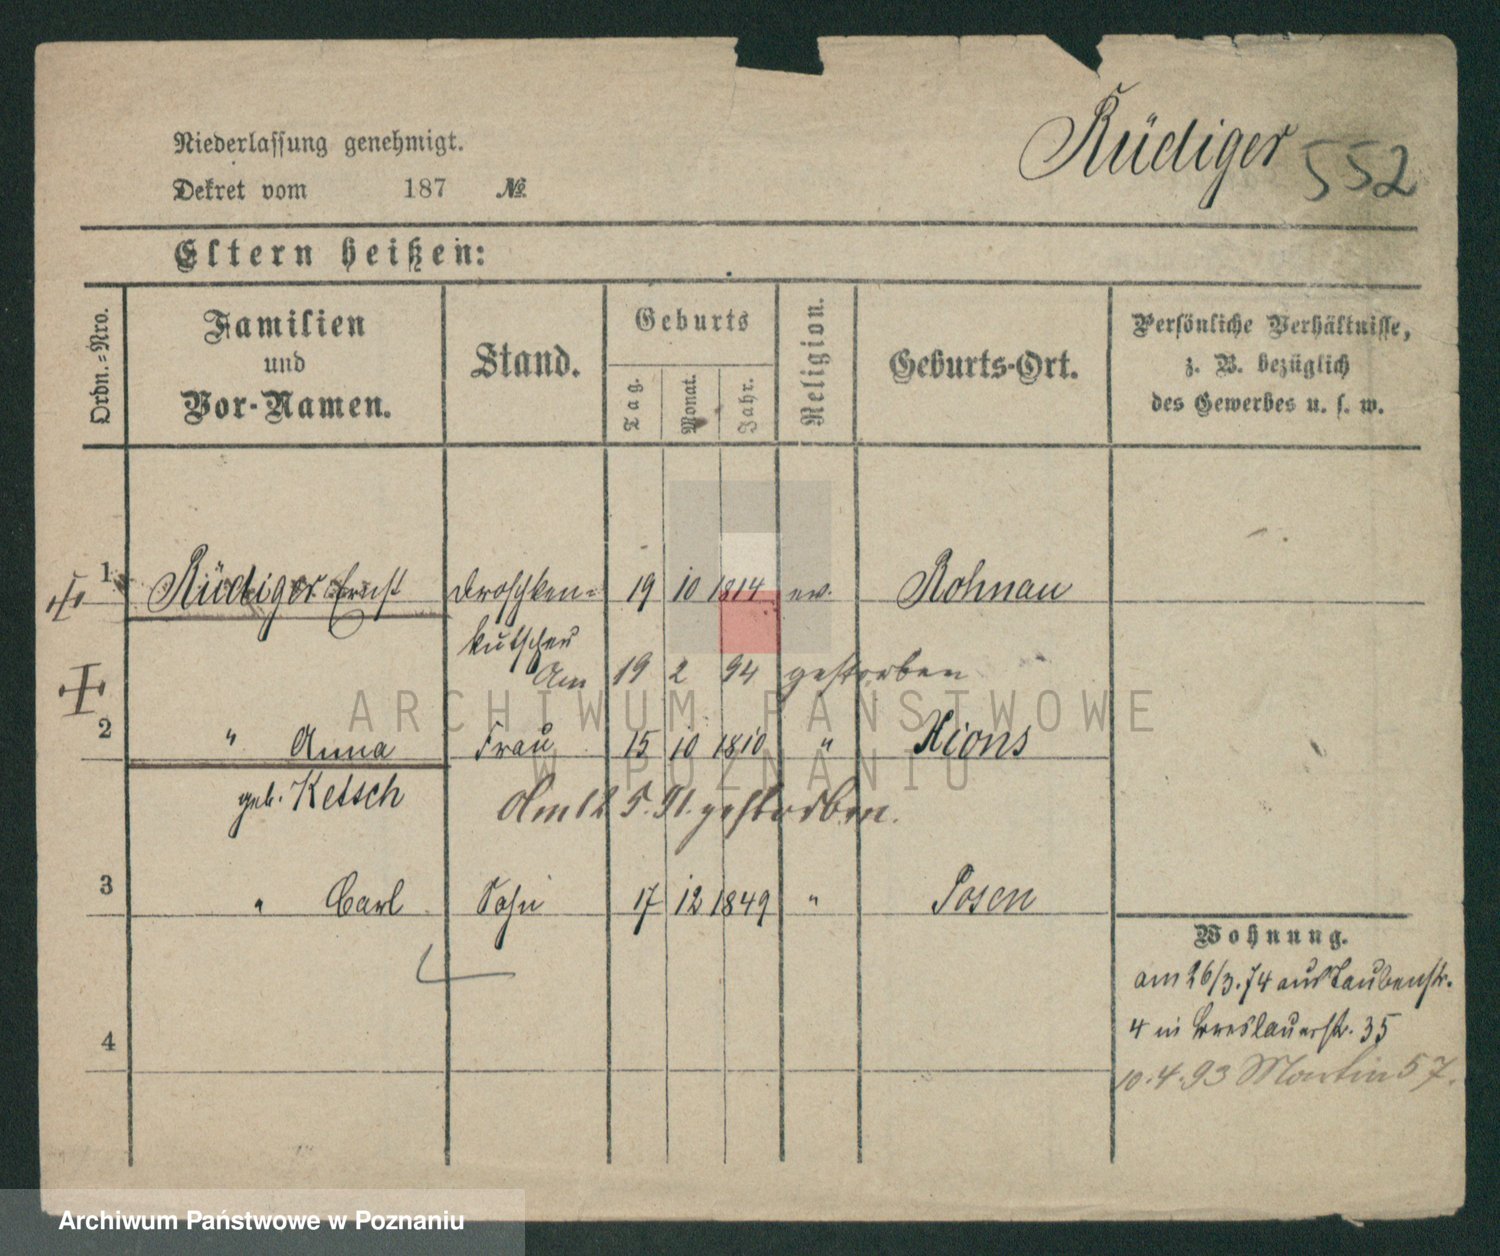 Rüdiger 552
Niederlassung genehmigt.
Dekret vom 187 №
Eltern heißen:
Ordn.-Nro.
Familien
und
Vor-Namen.
Stand.
Geburts
Tag.
Monat.
Jahr.
Religion.
Geburts-Ort.
Persönliche Verhältnisse,
z. B. bezüglich
des Gewerbes u. s. w.
1 Rüdiger Ernst Droschken= 19 10 1814 ev. Rohnau
kutscher
Am 19 2 94 gestorben
ARCHIWUM PAŃSTWOWE
W POZNANIU
2 " Anna Frau 15 10 1810 " Xions
geb. Ketsch
Am 12 5. 91. gestorben.
3 " Carl Sohn 17 12 1849 " Posen
4
Wohnung.
am 26/3.74 aus Taubenstr.
4 in Breslauerstr. 35
10.4.93 Martin 57.
Archiwum Państwowe w Poznaniu